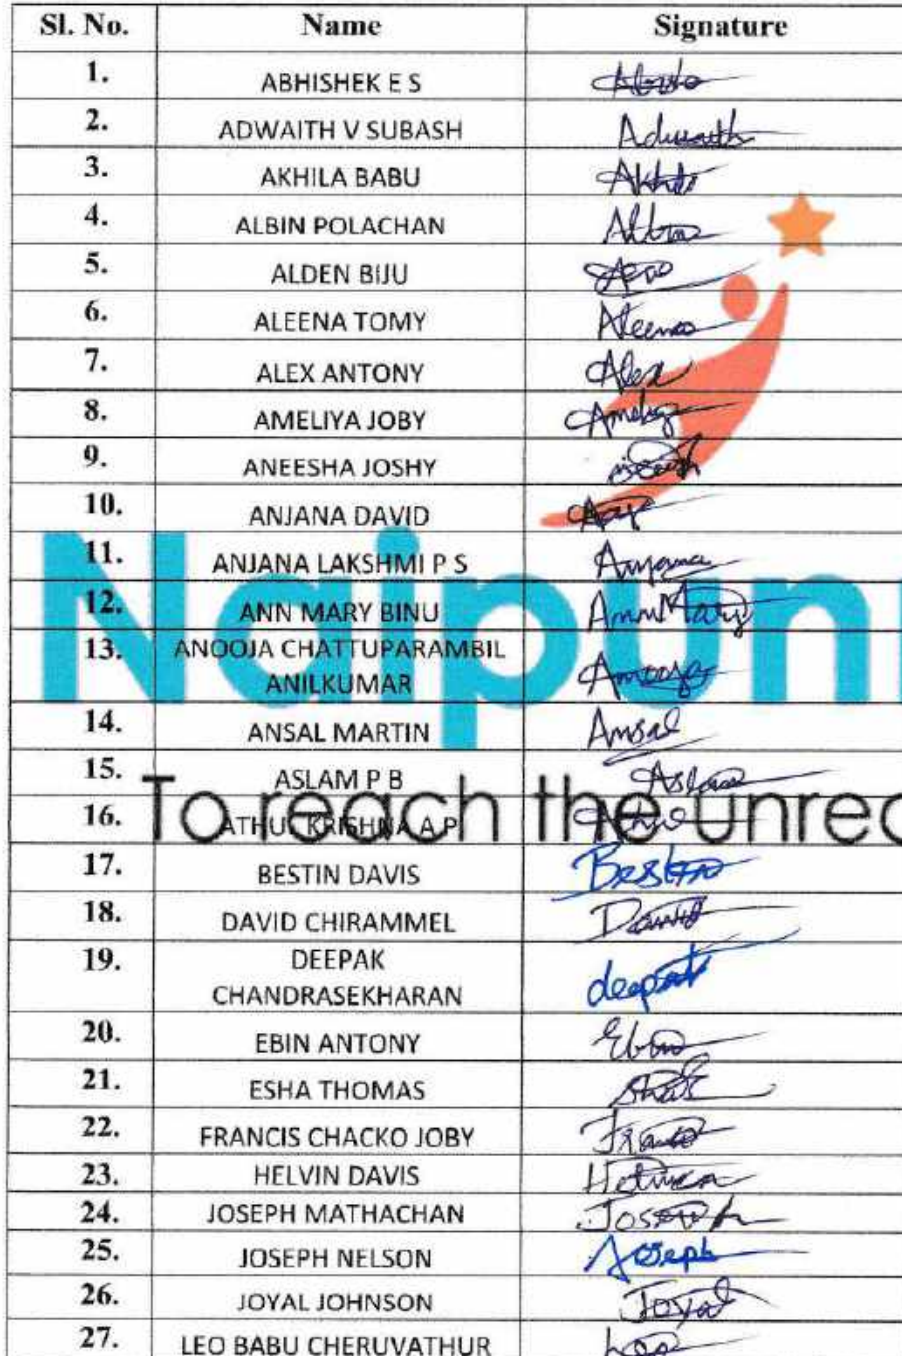 Sl. No. Name Signature
1. ABHISHEK E S
2. ADWAITH V SUBASH Adwaith
3. AKHILA BABU Akhila
4. ALBIN POLACHAN Albin
5. ALDEN BIJU
6. ALEENA TOMY Aleena
7. ALEX ANTONY Alex
8. AMELIYA JOBY Ameliya
9. ANEESHA JOSHY
10. ANJANA DAVID
11. ANJANA LAKSHMI P S Anjana
12. ANN MARY BINU Ann Mary
13. ANOOJA CHATTUPARAMBIL
ANILKUMAR Anooja
14. ANSAL MARTIN Ansal
15. ASLAM P B Aslam
16. ATHUL KRISHNA A P
17. BESTIN DAVIS Bestin
18. DAVID CHIRAMMEL David
19. DEEPAK
CHANDRASEKHARAN deepak
20. EBIN ANTONY Ebin
21. ESHA THOMAS
22. FRANCIS CHACKO JOBY
23. HELVIN DAVIS
24. JOSEPH MATHACHAN Joseph
25. JOSEPH NELSON Joseph
26. JOYAL JOHNSON Joyal
27. LEO BABU CHERUVATHUR Leo
Naipunn
To reach the unreac